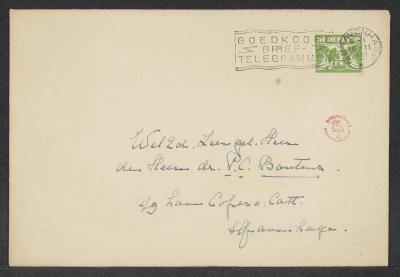 GOEDKOOP
BRIEF-
TELEGRAMM
NEDERLAND
WelEd. Zeergel. Heer
den Heere dr. P.C. Boutens.
4g Laan Copes v. Catt.
's Gravenhage.